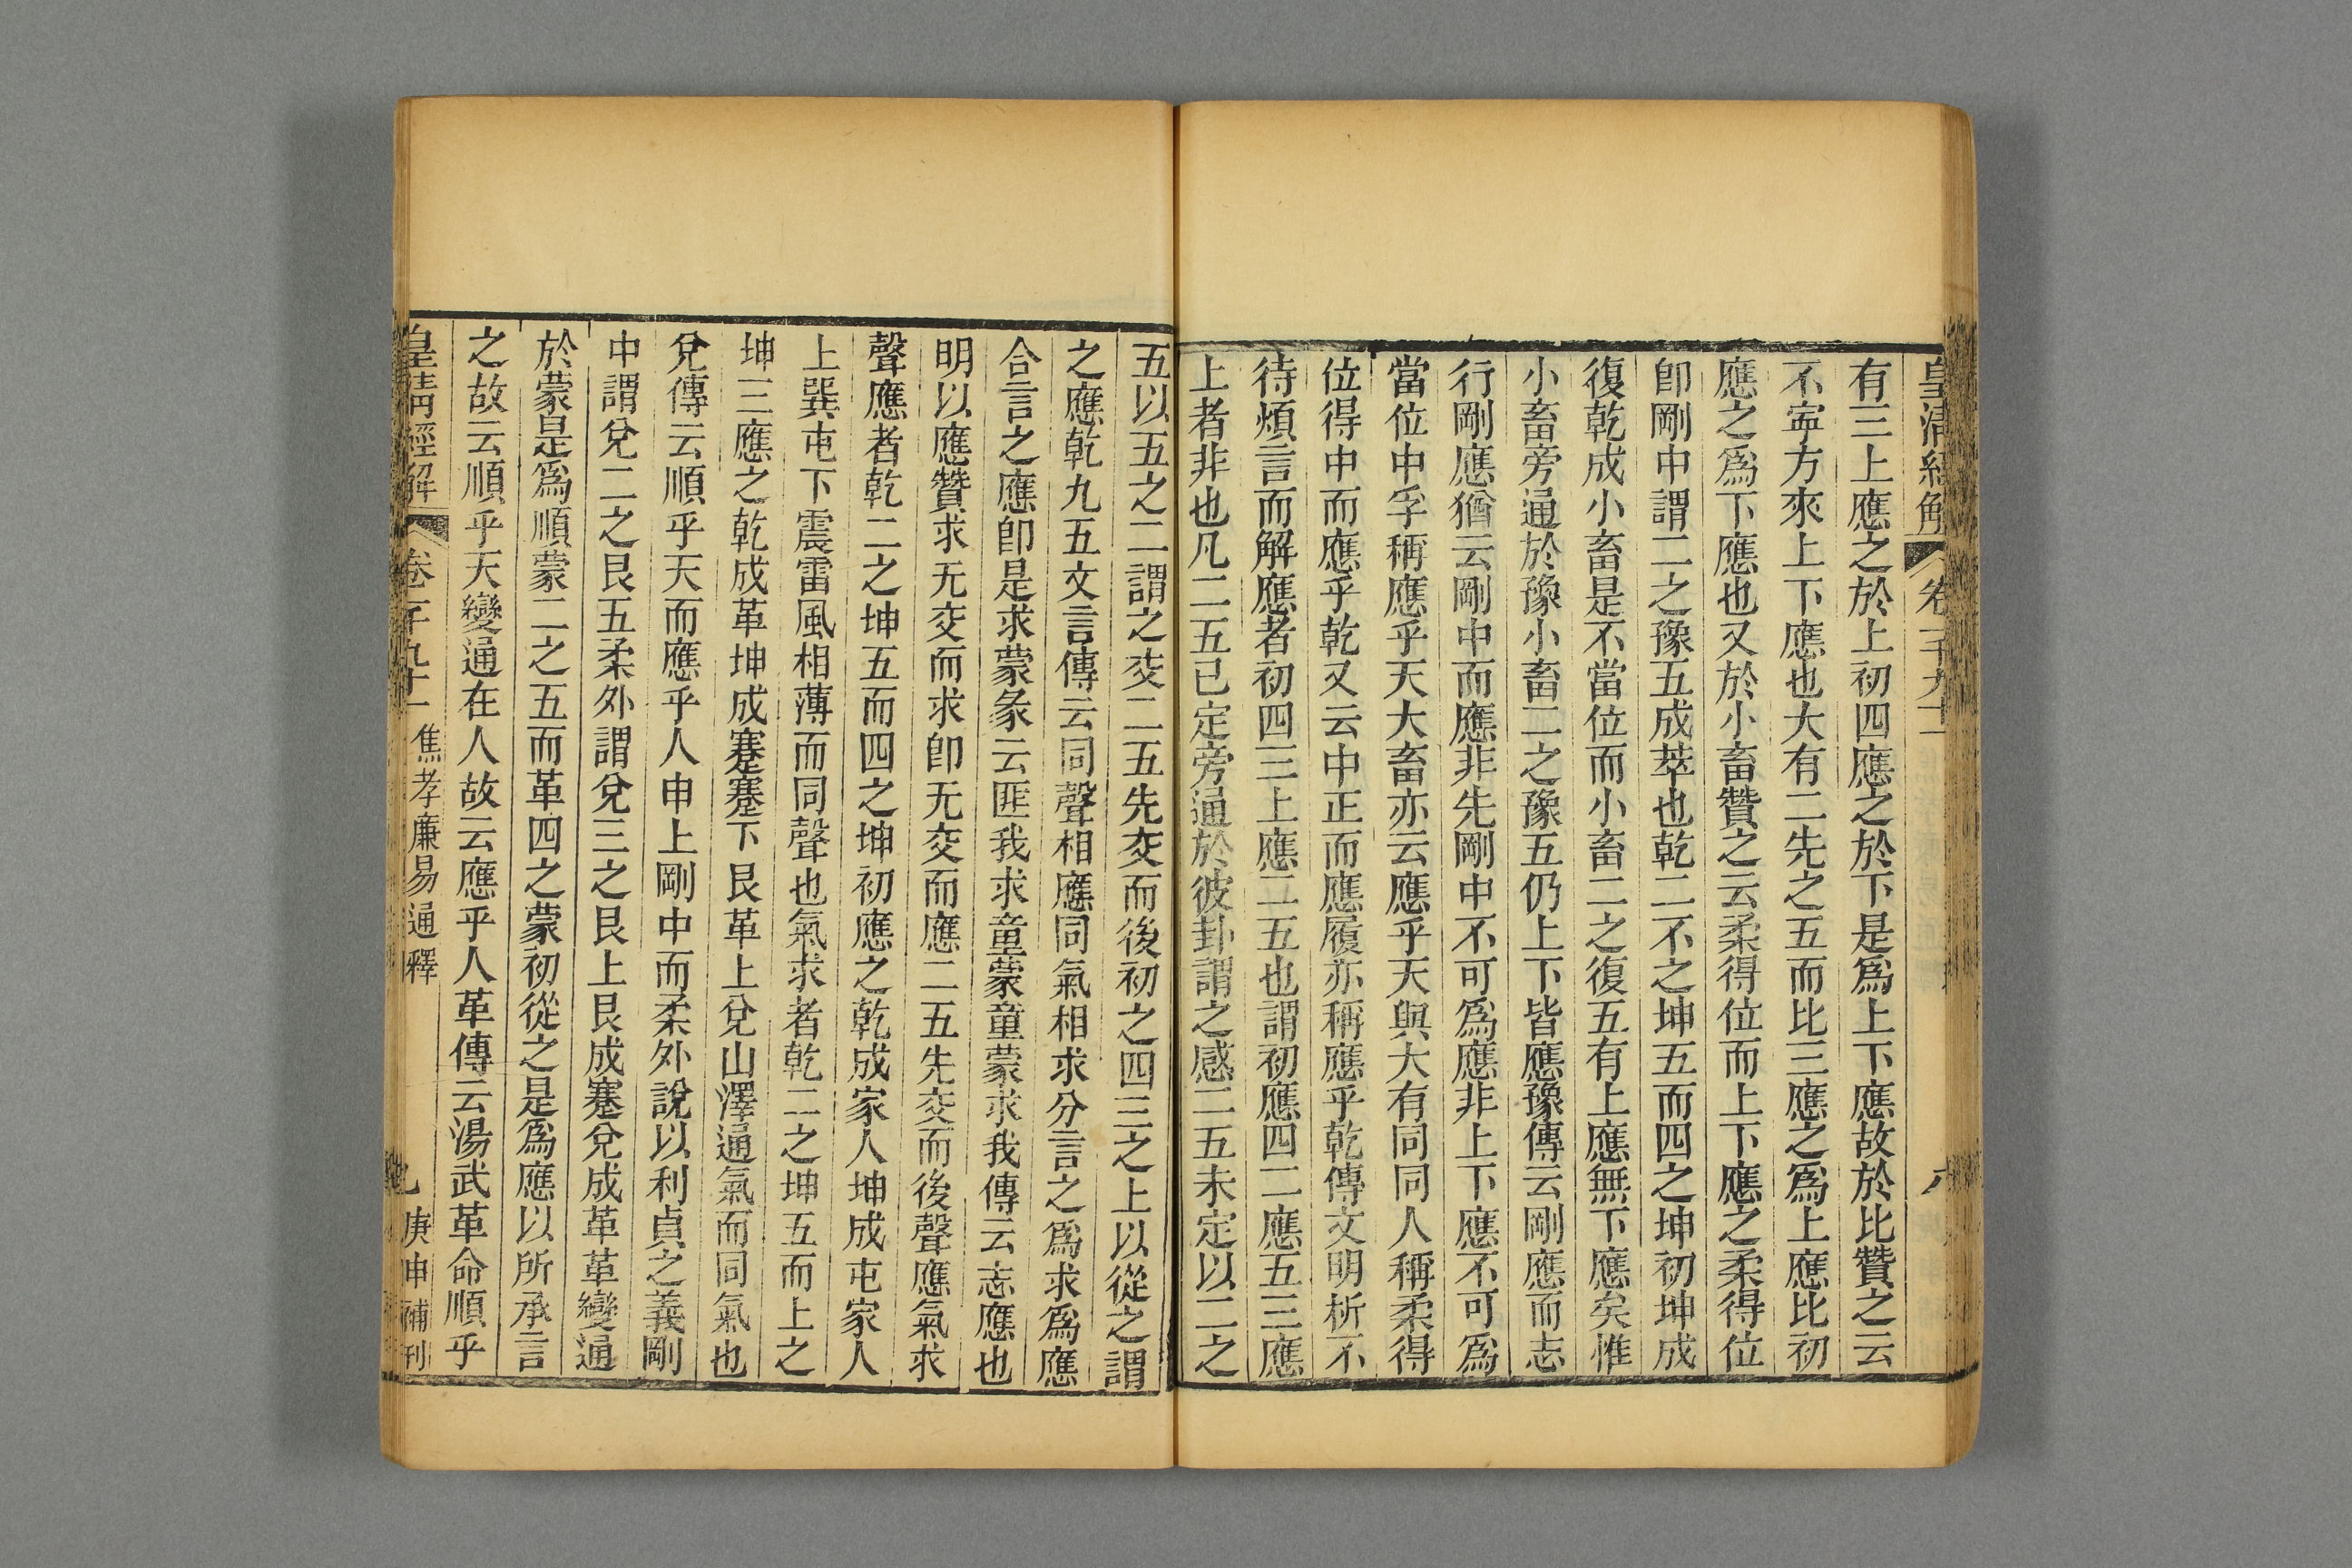 皇清經解 卷一千九十一 八
有三上應之於上初四應之於下是爲上下應故於比贊之云
不寍方來上下應也大有二先之五而比三應之爲上應比初
應之爲下應也又於小畜贊之云柔得位而上下應之柔得位
卽剛中謂二之豫五成萃也乾二不之坤五而四之坤初坤成
復乾成小畜是不當位而小畜二之復五有上應無下應矣惟
小畜旁通於豫小畜二之豫五仍上下皆應豫傳云剛應而志
行剛應猶云剛中而應非先剛中不可爲應非上下應不可爲
當位中孚稱應乎天大畜亦云應乎天與大有同同人稱柔得
位得中而應乎乾又云中正而應履亦稱應乎乾傳文明析不
待煩言而解應者初四三上應二五也謂初應四二應五三應
上者非也凡二五已定旁通於彼卦謂之感二五未定以二之
五以五之二謂之交二五先交而後初之四三之上以從之謂
之應乾九五文言傳云同聲相應同氣相求分言之爲求爲應
合言之應卽是求蒙彖云匪我求童蒙童蒙求我傳云志應也
明以應贊求无交而求卽无交而應二五先交而後聲應氣求
聲應者乾二之坤五而四之坤初應之乾成家人坤成屯家人
上巽屯下震雷風相薄而同聲也氣求者乾二之坤五而上之
坤三應之乾成革坤成蹇蹇下艮革上兌山澤通氣而同氣也
兌傳云順乎天而應乎人申上剛中而柔外說以利貞之義剛
中謂兌二之艮五柔外謂兌三之艮上艮成蹇兌成革革變通
於蒙是爲順蒙二之五而革四之蒙初從之是爲應以所承言
之故云順乎天變通在人故云應乎人革傳云湯武革命順乎
皇清經解 卷一千九十一 焦孝廉易通釋 庚申補刊